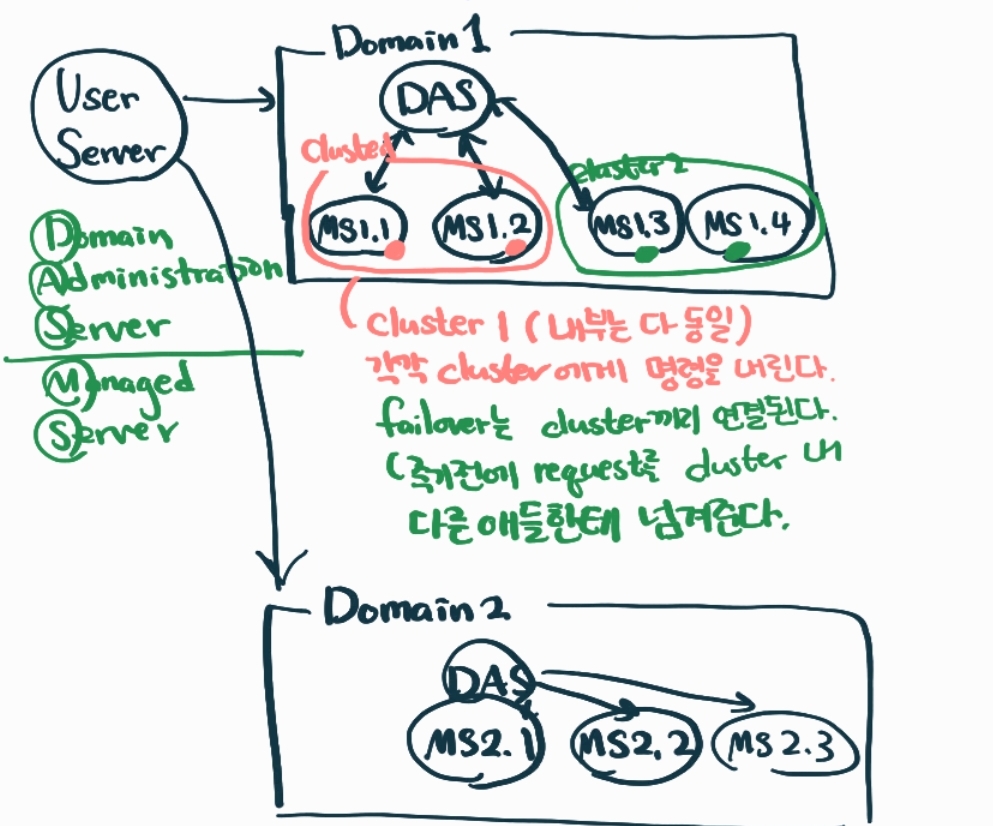 User
Server
Domain 1
DAS
Cluster1
Cluster 2
MS1.1
MS1.2
MS1.3
MS1.4
Domain
Administration
Server
Managed
Server
Cluster 1 (내부는 다 동일)
각각 cluster에게 명령을 내린다.
failover는 cluster끼리 연결된다.
(죽기전에 request를 cluster 내
다른 애들한테 넘겨준다.
Domain 2
DAS
MS2.1
MS2.2
MS2.3